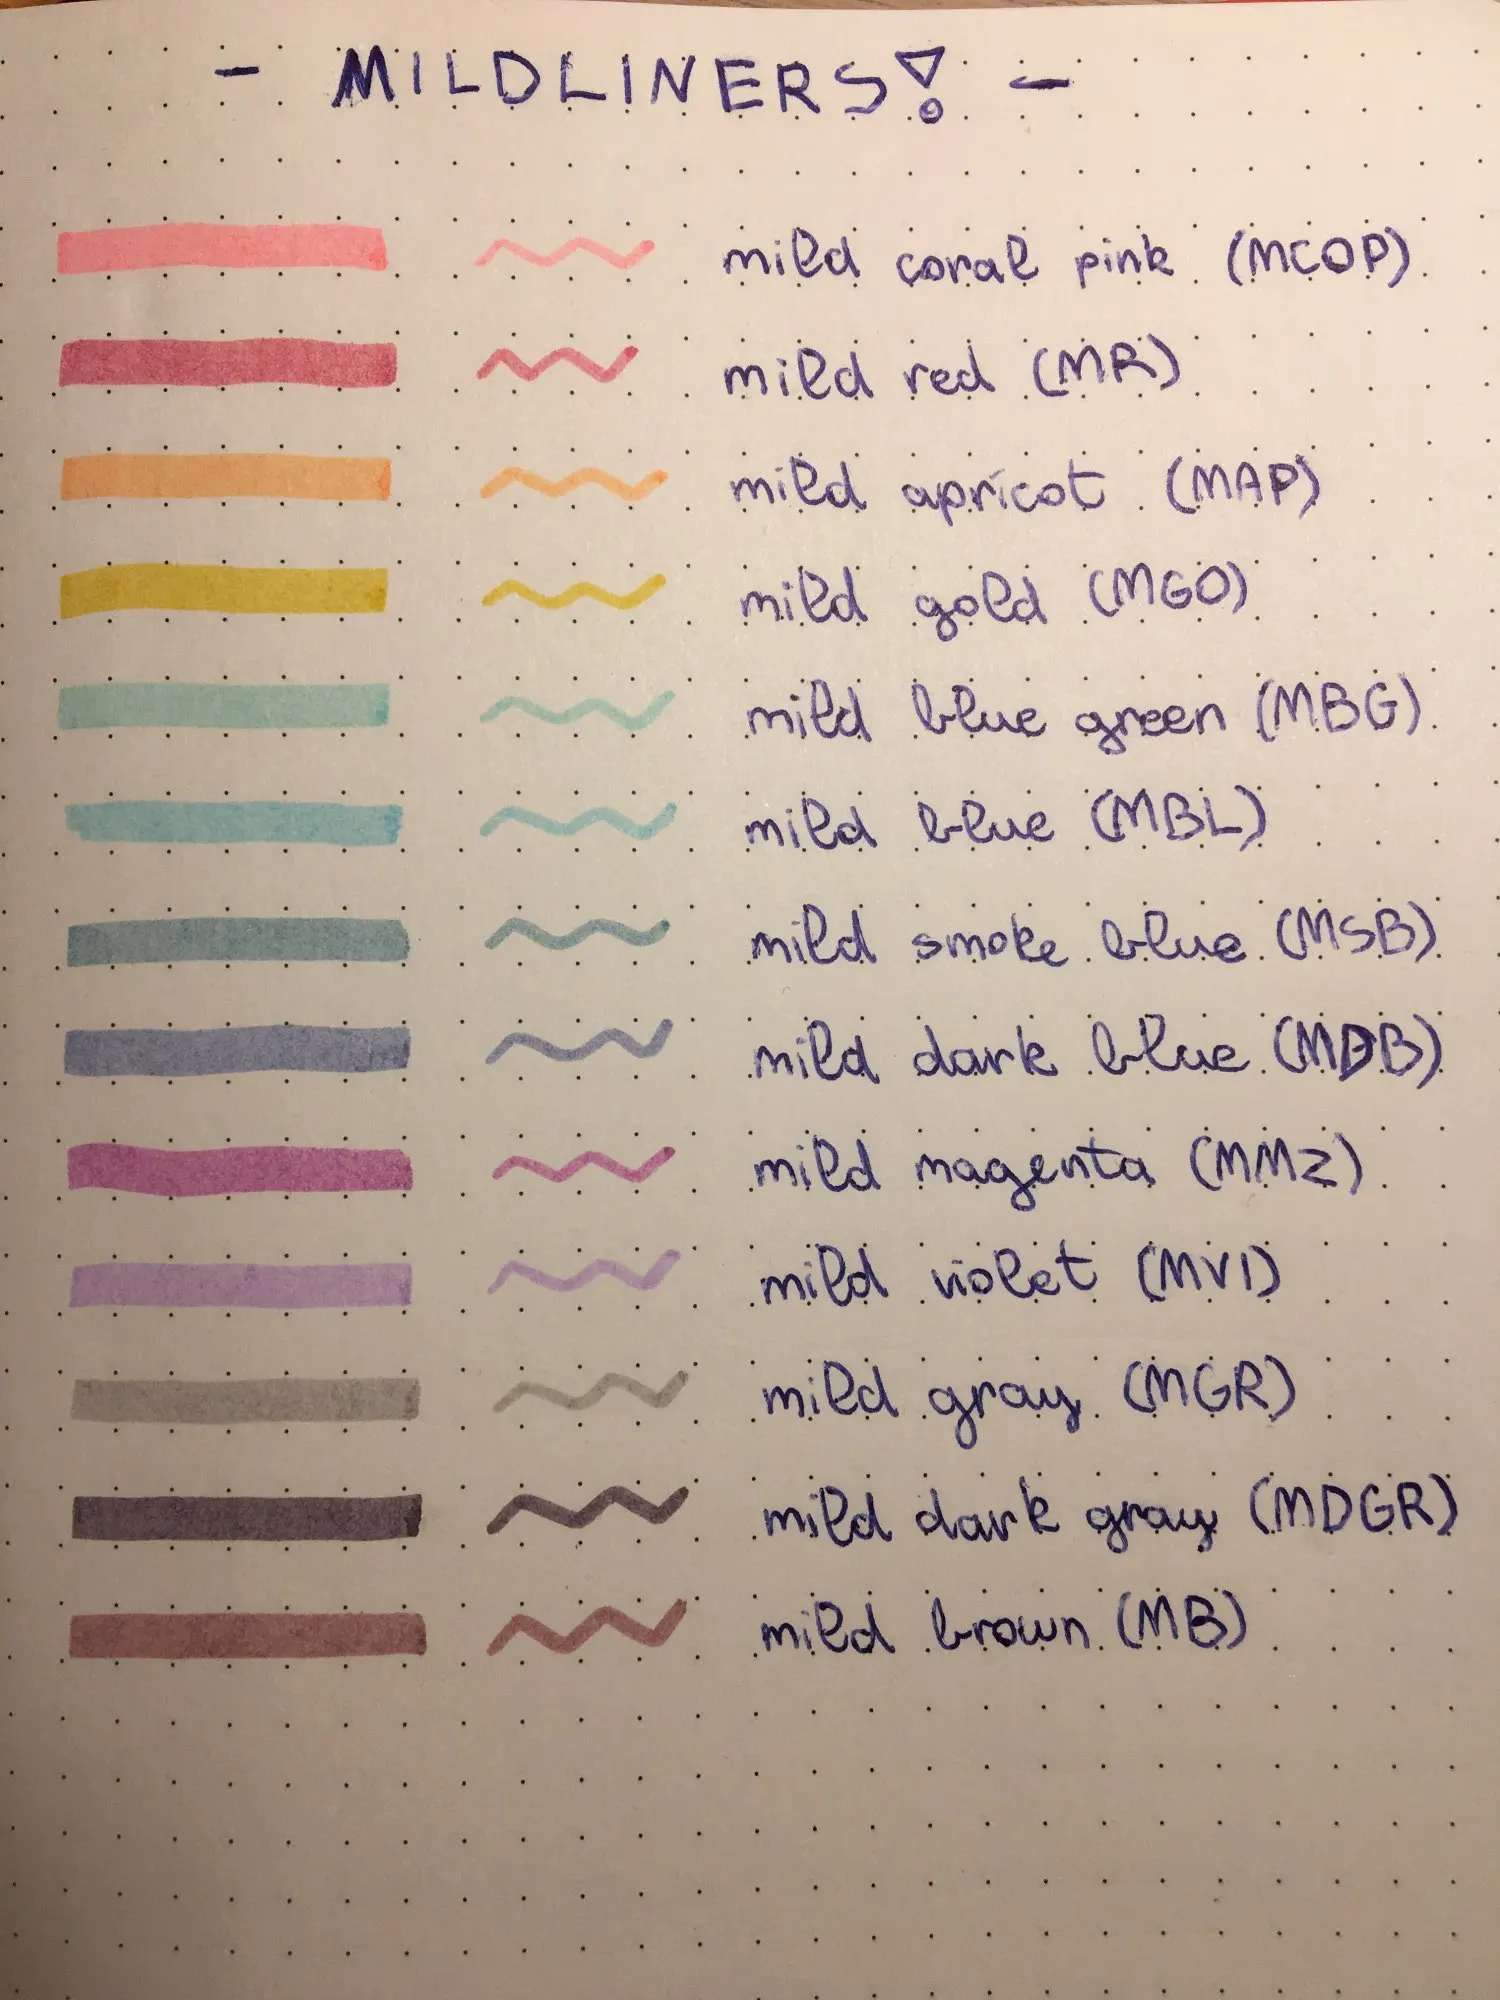 - MILDLINERS! -
mild coral pink (MCOP)
mild red (MR)
mild apricot (MAP)
mild gold (MGO)
mild blue green (MBG)
mild blue (MBL)
mild smoke blue (MSB)
mild dark blue (MDB)
mild magenta (MMZ)
mild violet (MVI)
mild gray (MGR)
mild dark gray (MDGR)
mild brown (MB)